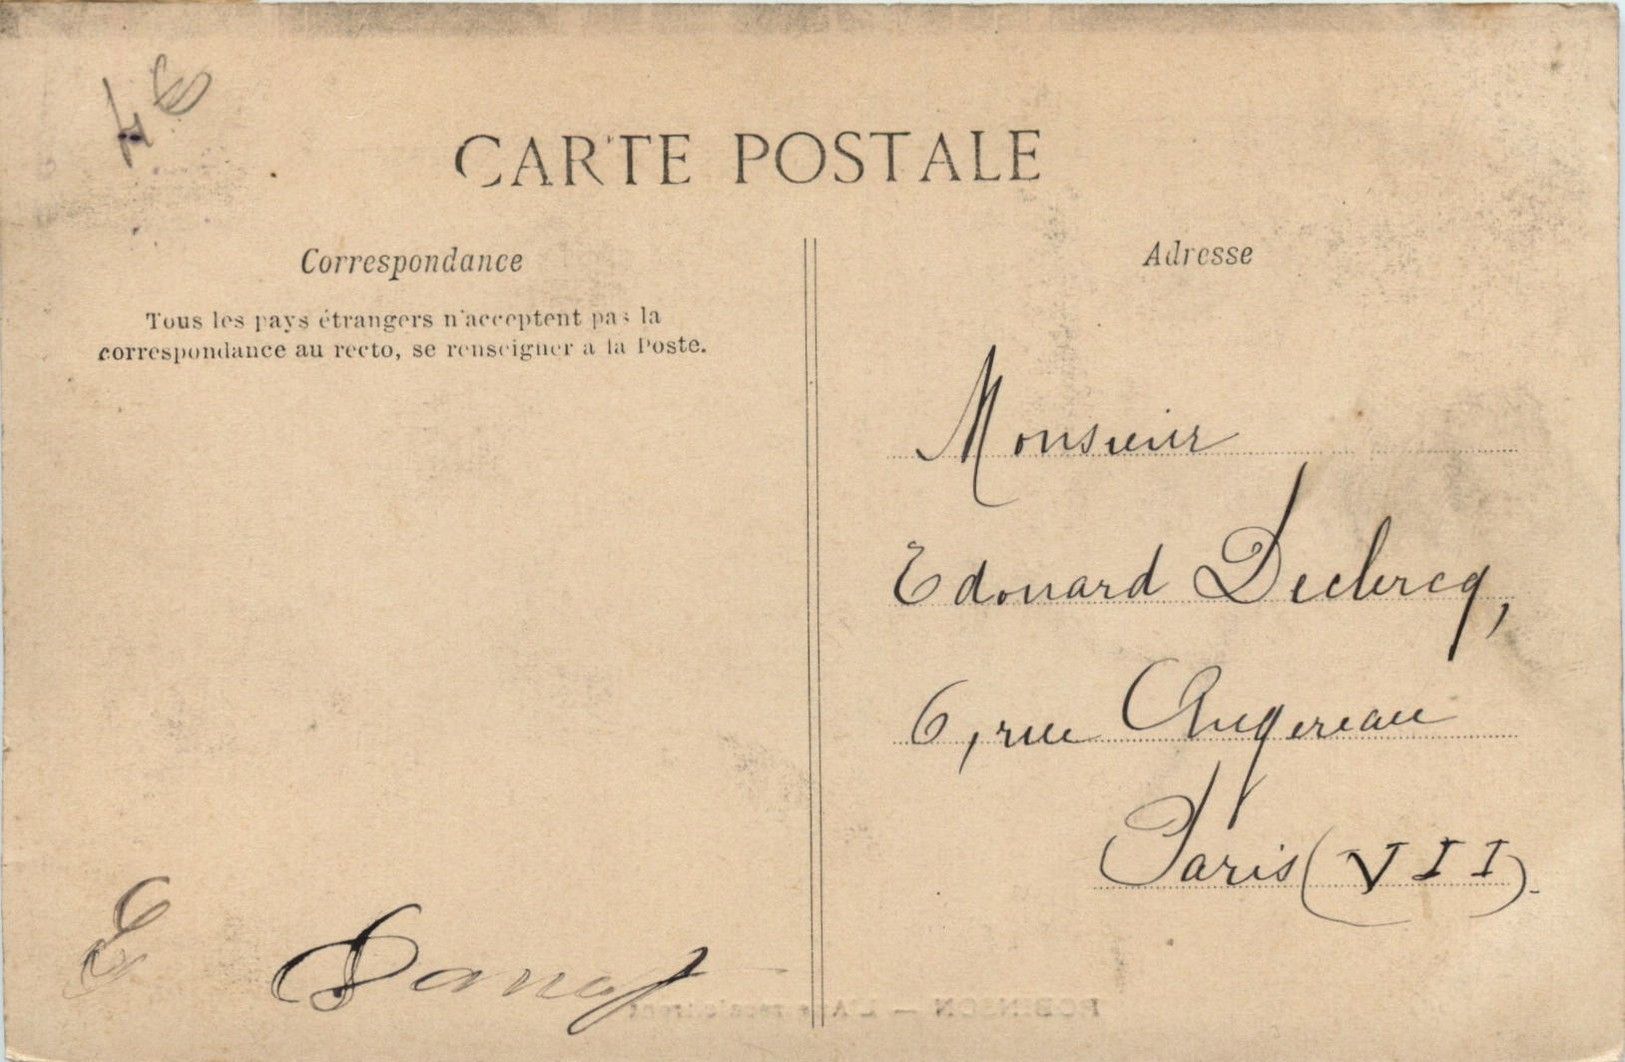 CARTE POSTALE
Correspondance
Tous les pays étrangers n'acceptent pas la
correspondance au recto, se renseigner à la Poste.
Adresse
Monsieur
Edouard Declercq,
6, rue Augereau
Paris (VII).
ROBINSON — L'Ane récalcitrant